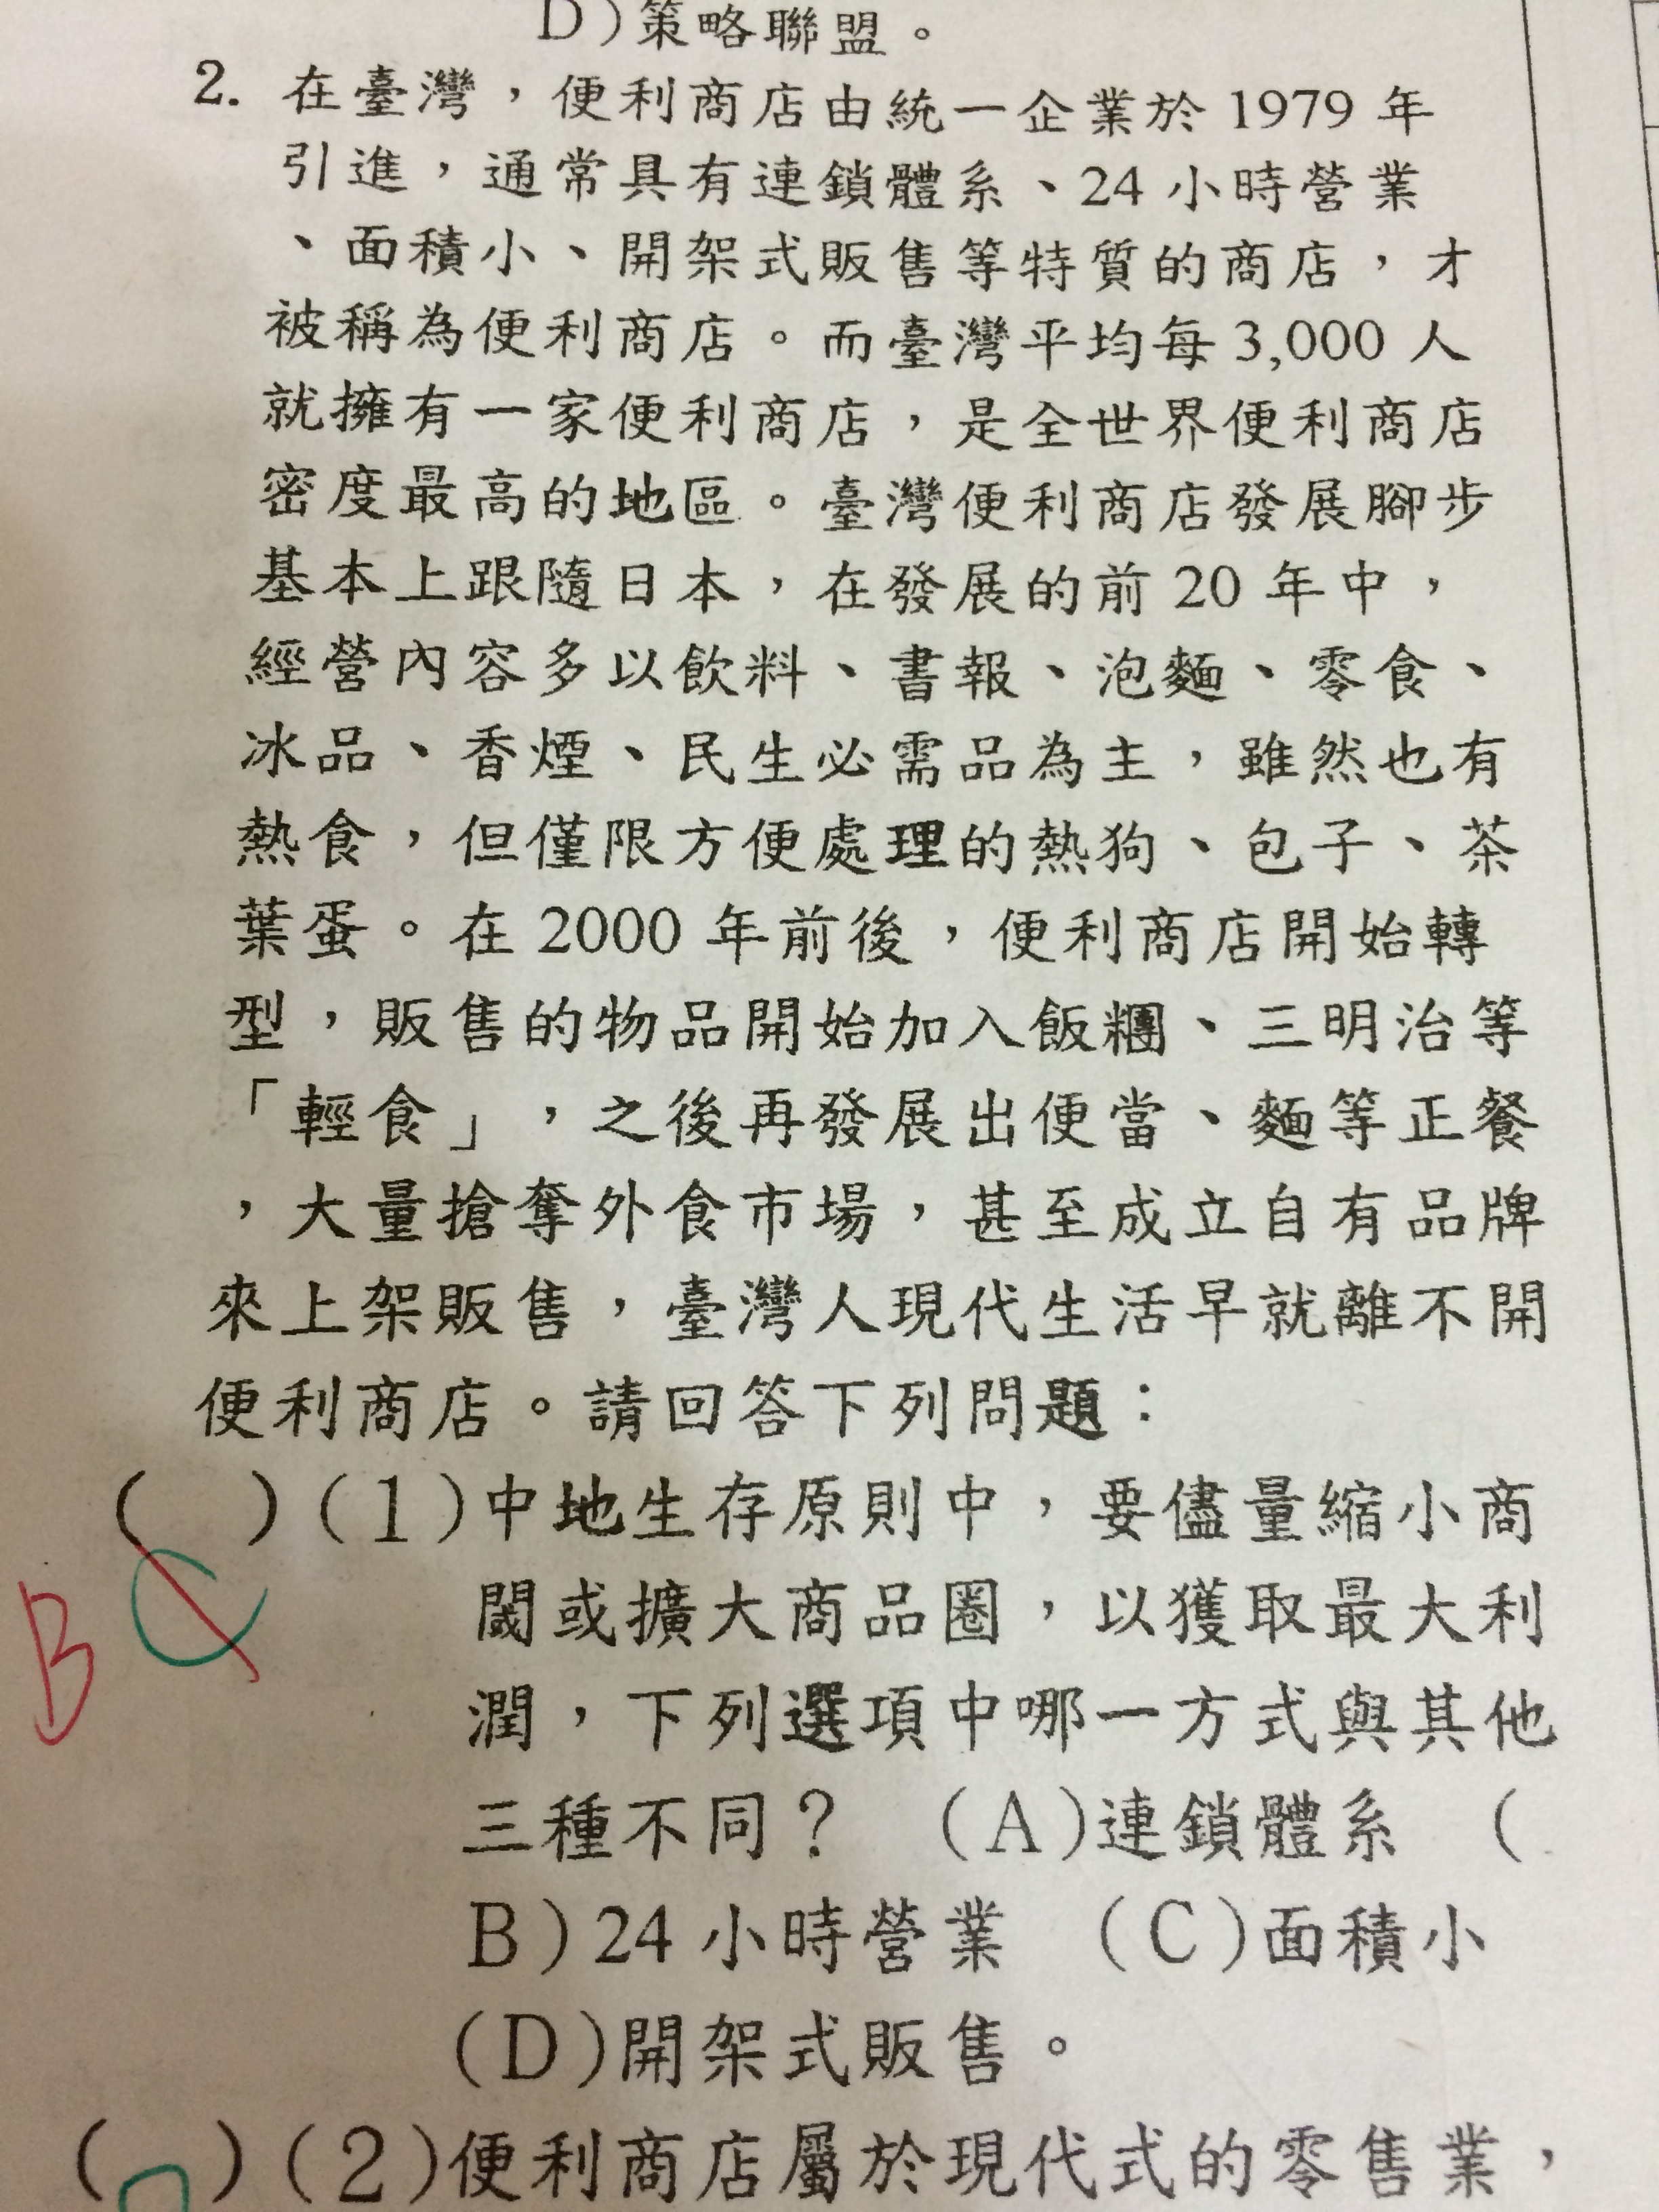 D)策略聯盟。
2. 在臺灣，便利商店由統一企業於 1979 年
引進，通常具有連鎖體系、24 小時營業
、面積小、開架式販售等特質的商店，才
被稱為便利商店。而臺灣平均每 3,000 人
就擁有一家便利商店，是全世界便利商店
密度最高的地區。臺灣便利商店發展腳步
基本上跟隨日本，在發展的前 20 年中，
經營內容多以飲料、書報、泡麵、零食、
冰品、香煙、民生必需品為主，雖然也有
熱食，但僅限方便處理的熱狗、包子、茶
葉蛋。在 2000 年前後，便利商店開始轉
型，販售的物品開始加入飯糰、三明治等
「輕食」，之後再發展出便當、麵等正餐
，大量搶奪外食市場，甚至成立自有品牌
來上架販售，臺灣人現代生活早就離不開
便利商店。請回答下列問題：
( )(1)中地生存原則中，要儘量縮小商
B C
閾或擴大商品圈，以獲取最大利
潤，下列選項中哪一方式與其他
三種不同？ (A)連鎖體系 (
B)24 小時營業 (C)面積小
(D)開架式販售。
( )(2)便利商店屬於現代式的零售業，